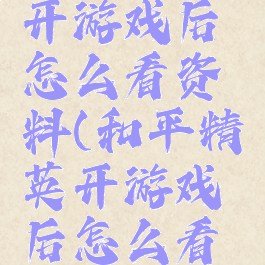 开游戏后
怎么看资
料(和平精
英开游戏
后怎么看